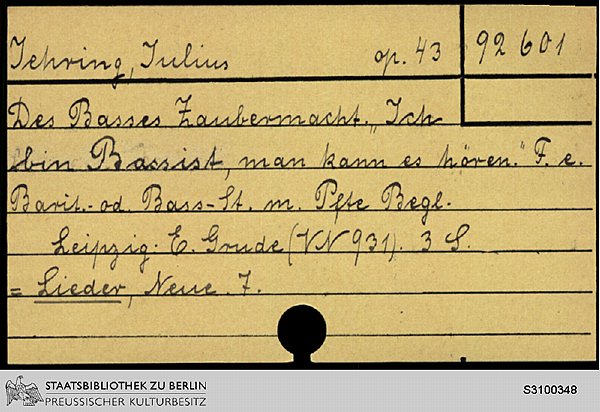 Jehring, Julius op. 43 92 601
Des Basses Zaubermacht. „Ich
bin Bassist, man kann es hören." F. e.
Barit.- od. Bass-St. m. Pfte Begl.
Leipzig: E. Grude (VN 931). 3 S.
= Lieder, Neue. 7.
STAATSBIBLIOTHEK ZU BERLIN
PREUSSISCHER KULTURBESITZ
S3100348